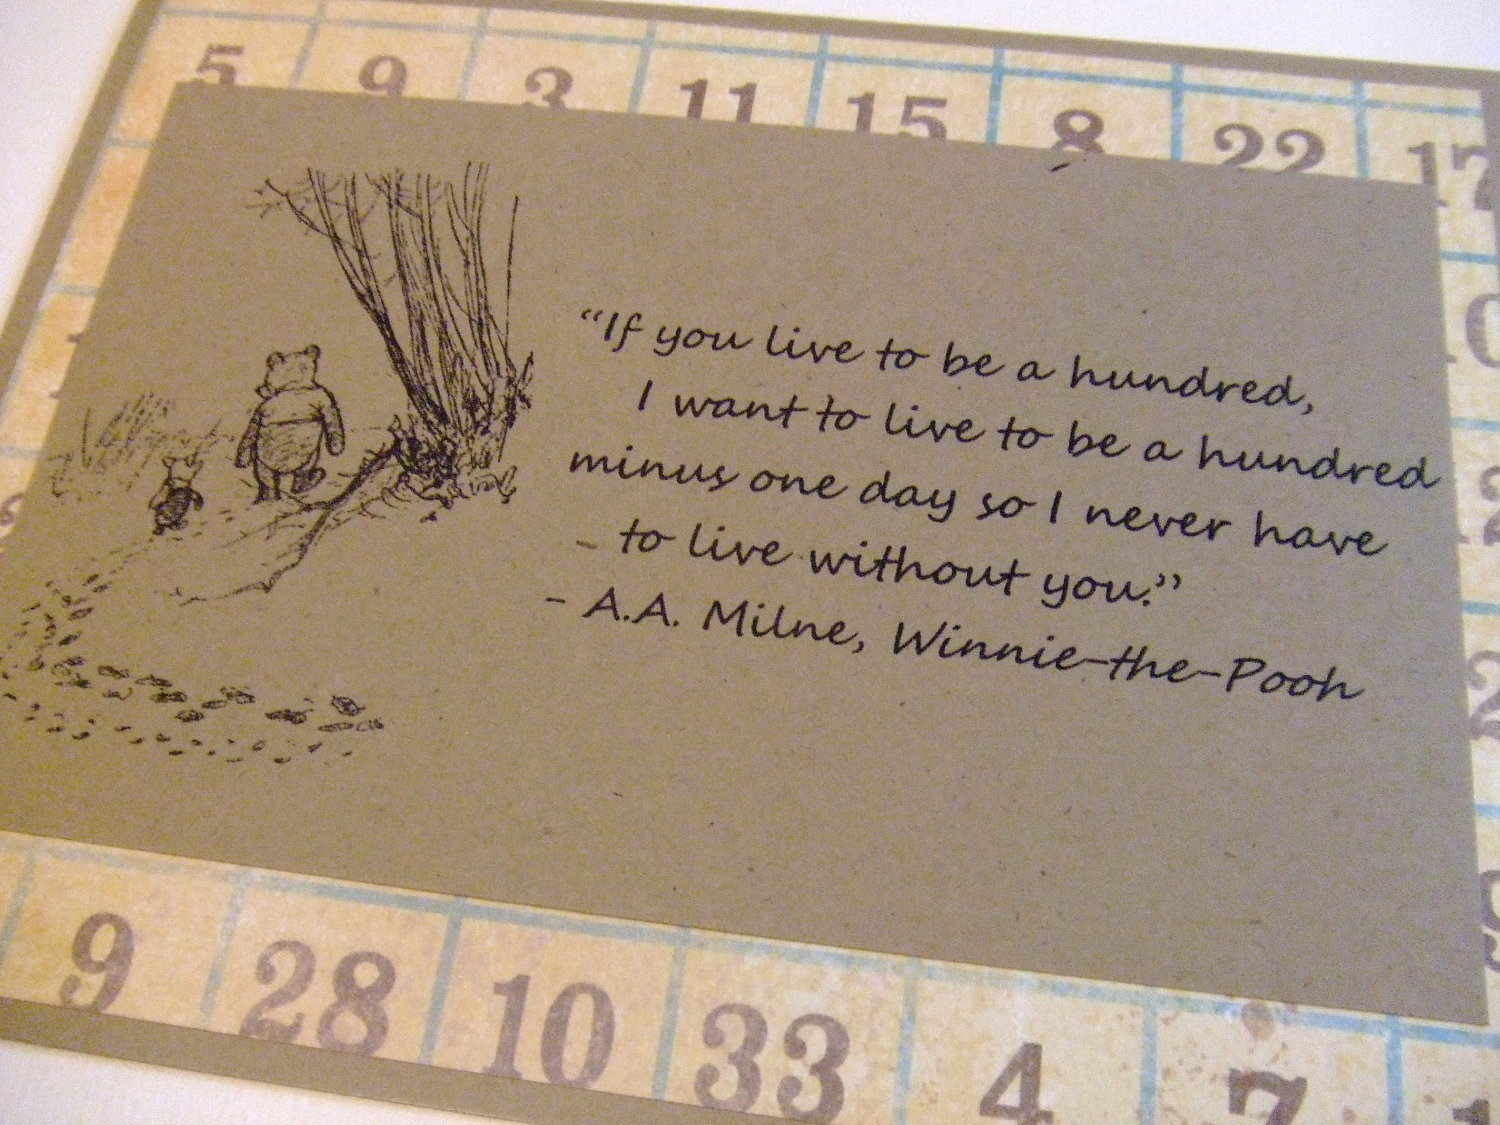 5 9 3 11 15 8 22 17
“If you live to be a hundred,
I want to live to be a hundred
minus one day so I never have
to live without you.”
- A.A. Milne, Winnie-the-Pooh
9 28 10 33 4 7